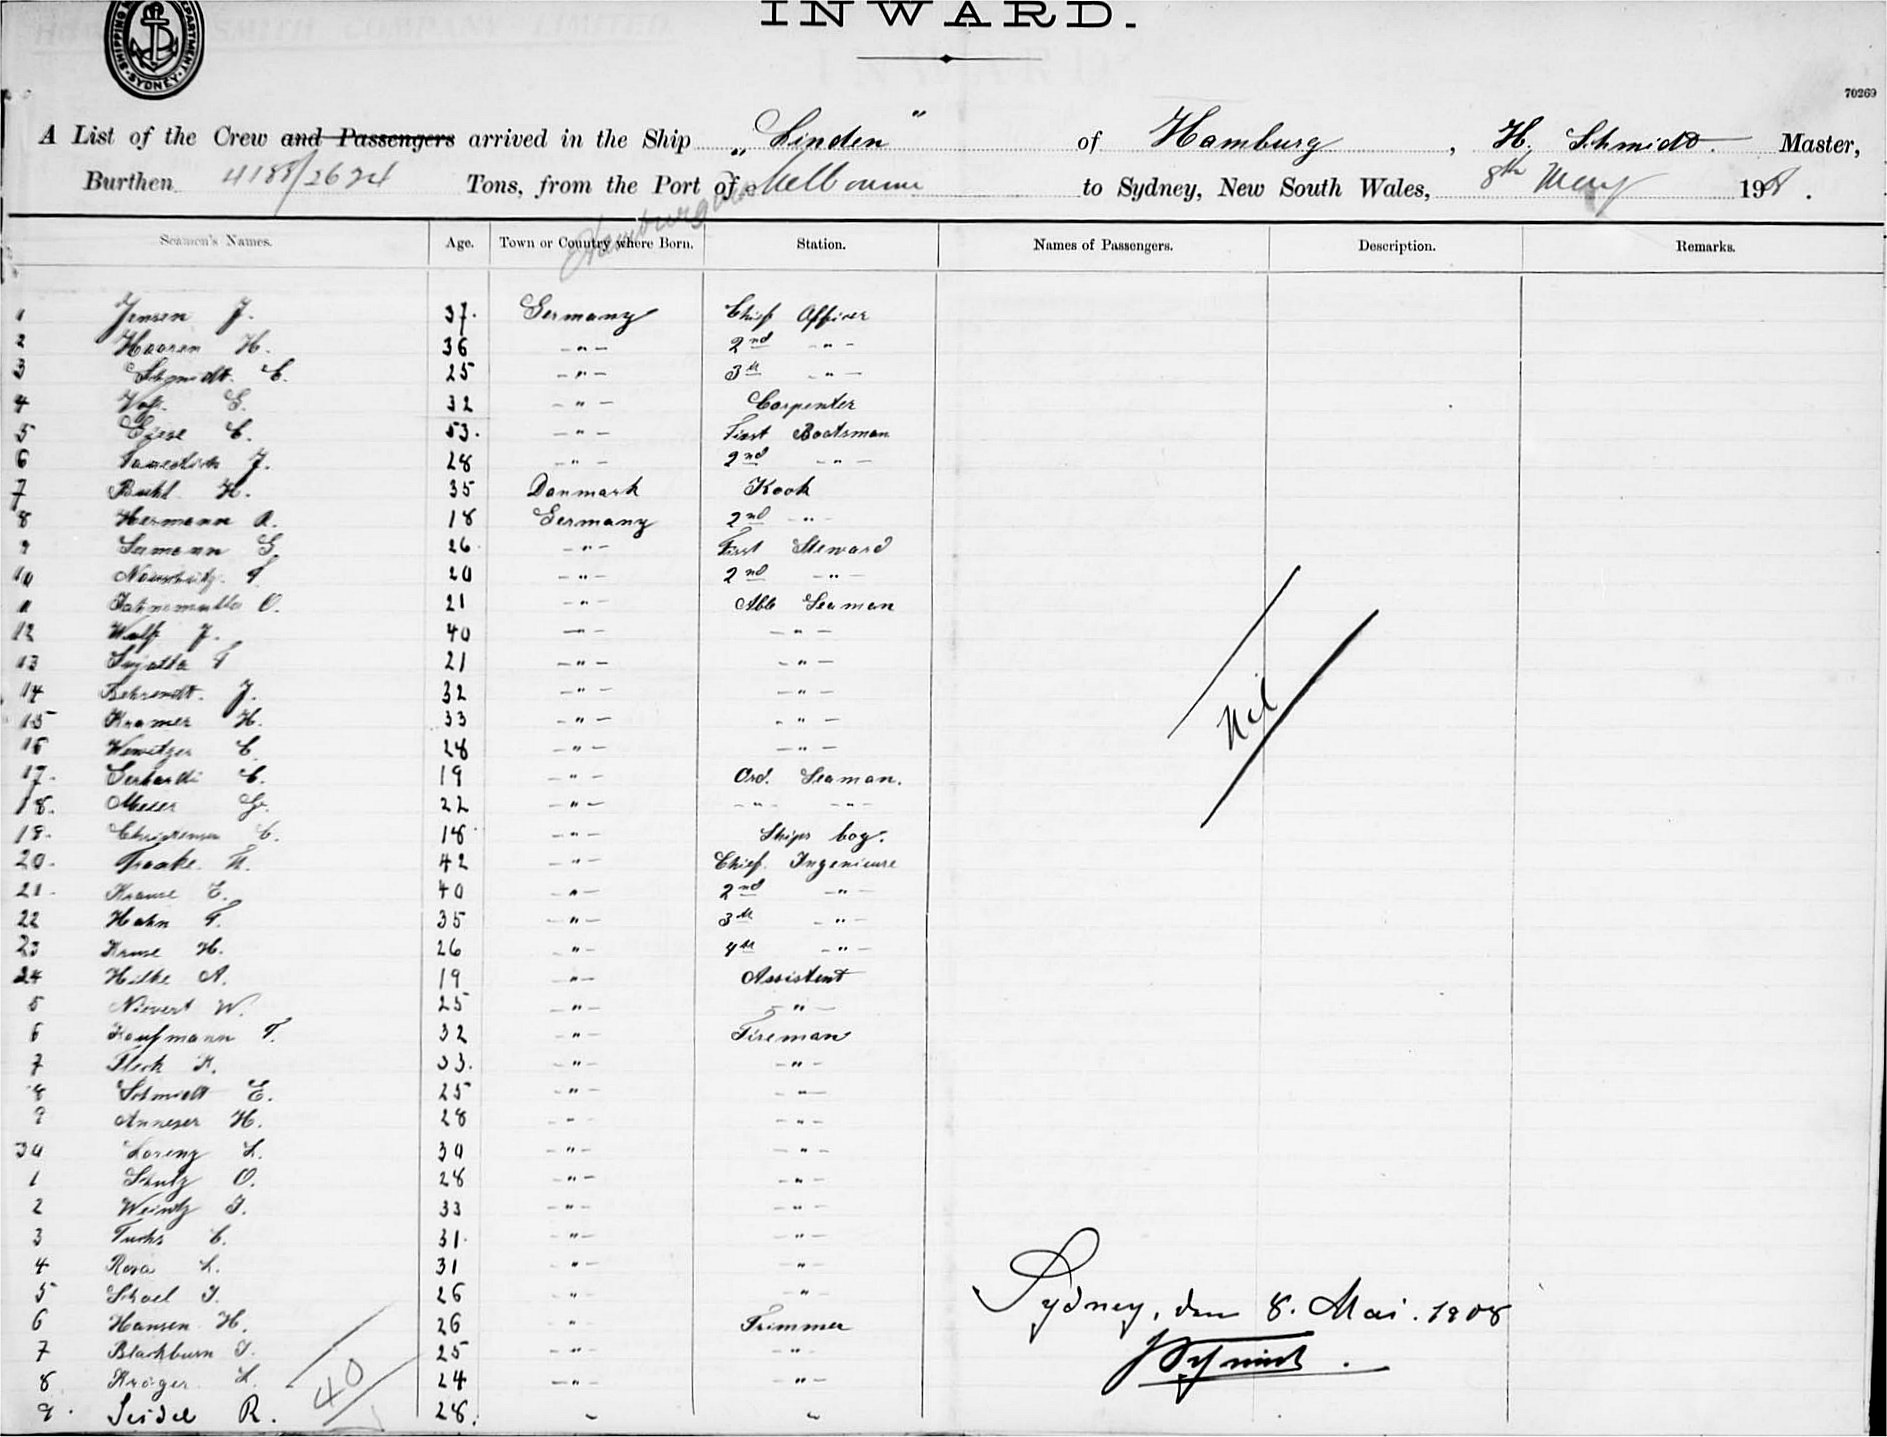 INWARD.
SHIPPING DEPARTMENT SYDNEY
70269
A List of the Crew and Passengers arrived in the Ship „Linden" of Hamburg, H. Schmidt. Master,
Burthen 4188/2624 Tons, from the Port of Melbourne to Sydney, New South Wales, 8th May 1908.
Hamburg via
Seamen's Names. Age. Town or Country where Born. Station. Names of Passengers. Description. Remarks.
1 Jensen J. 37. Germany Chief Officer
2 Haaren H. 36 -"- 2nd -"-
3 Schmidt. C. 25 -"- 3th -"-
4 G. 32 -"- Carpenter
5 Giese C. 53. -"- First Boatsman
6 J. 28 -"- 2nd -"-
7 Buhl H. 35 Danmark Kook
8 Hermann A. 18 Germany 2nd -"-
9 Seemann G. 26 -"- First Steward
10 F. 20 -"- 2nd -"-
11 O. 21 -"- Able Seaman
12 Wulf J. 40 -"- -"-
13 F 21 -"- -"-
14 Behrendt. J. 32 -"- -"-
15 Kramer H. 33 -"- -"-
16 C. 28 -"- -"-
17. Gerhardi C. 19 -"- Ord. Seaman.
18. Meier G. 22 -"- -"- -"-
19. C. 18 -"- Ships boy.
20. Fraake. H. 42 -"- Chief. Ingenieure
21. Krause E. 40 -"- 2nd -"-
22 Hahn F. 35 -"- 3th -"-
23 Kruse H. 26 -"- 4th -"-
24 Hilke A. 19 -"- Assistent
5 Nievert W. 25 -"- -"-
6 Kaufmann F. 32 -"- Fireman
7 Fleck K. 33. -"- -"-
8 Schmidt E. 25 -"- -"-
9 Anneser H. 28 -"- -"-
30 Lorenz L. 30 -"- -"-
1 Schulz O. 28 -"- -"-
2 Weintz J. 33 -"- -"-
3 Fuchs C. 31. -"- -"-
4 Rosa L. 31 -"- -"-
5 Schael J. 26 -"- -"-
6 Hansen H. 26 " Trimmer
7 Blackburn J. 25 -"- -"-
8 Kröger L. 24 -"- -"-
9. Seidel R. 28. " "
40
Nil
Sydney, den 8. Mai. 1908
HSchmidt.